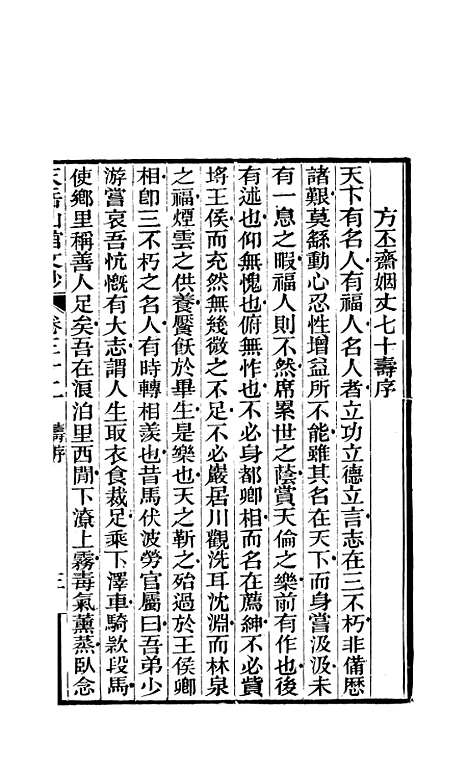 方丕齋姻丈七十壽序
天下有名人有福人名人者立功立德立言志在三不朽非備歷
諸艱莫繇動心忍性增益所不能雖其名在天下而身嘗汲汲未
有一息之暇福人則不然席累世之蔭賞天倫之樂前有作也後
有述也仰無愧也俯無怍也不必身都卿相而名在薦紳不必貲
埒王侯而充然無幾微之不足不必巖居川觀洗耳沈淵而林泉
之福煙雲之供養饜飫於畢生是樂也天之靳之殆過於王侯卿
相卽三不朽之名人有時轉相羨也昔馬伏波勞官屬曰吾弟少
游嘗哀吾忼慨有大志謂人生取衣食裁足乘下澤車騎款段馬
使鄉里稱善人足矣吾在浪泊里西閒下潦上霧毒氣薰蒸臥念
天岳山館文鈔 卷三十二 壽序 三